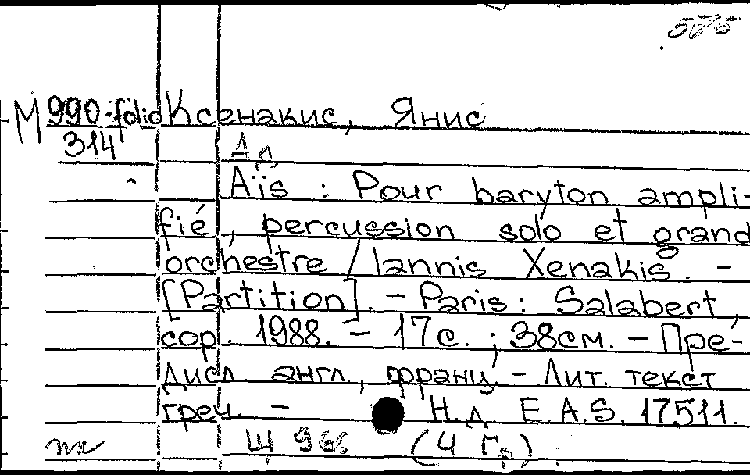 575
М 990-folio Ксенакис, Янис
314
Ад
Aïs : Pour baryton ampli-
fié, percussion solo et grand
orchestre / Iannis Xenakis. -
[Partition]. - Paris : Salabert,
cop. 1988. - 17 с. ; 38 см. - Пре-
дисл. англ., франц. - Лит. текст
греч. - Н.д. E.A.S. 17511.
Щ 966 (4 Гр)